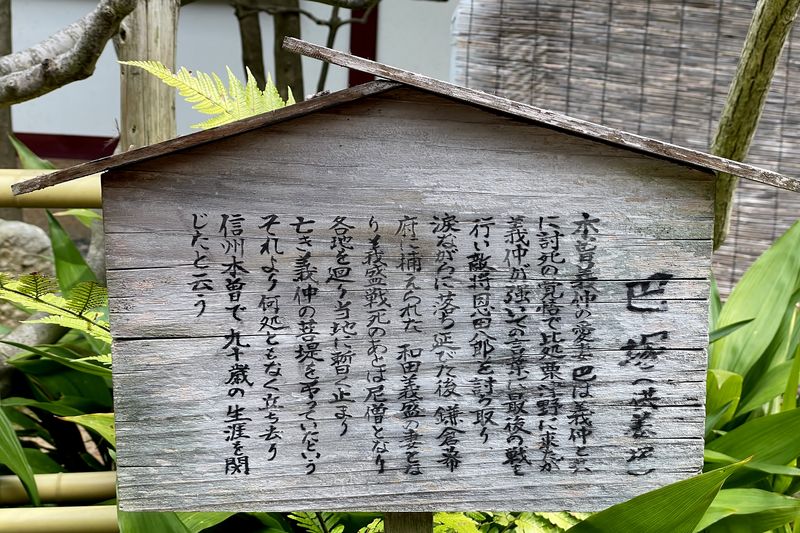 巴塚(供養塔)
木曽義仲の愛妾 巴は義仲と共
に討死の覚悟で此処粟津野に来たが
義仲が強いての言葉に最後の戦を
行い敵将恩田八郎を討ち取り
涙ながらに落ち延びた後 鎌倉幕
府に捕えられた 和田義盛の妻とな
り義盛戦死のあとは尼僧となり
各地を廻り当地に暫く止まり
亡き義仲の菩提を弔っていたという
それより何処ともなく立ち去り
信州木曽で九十歳の生涯を閉
じたと云う